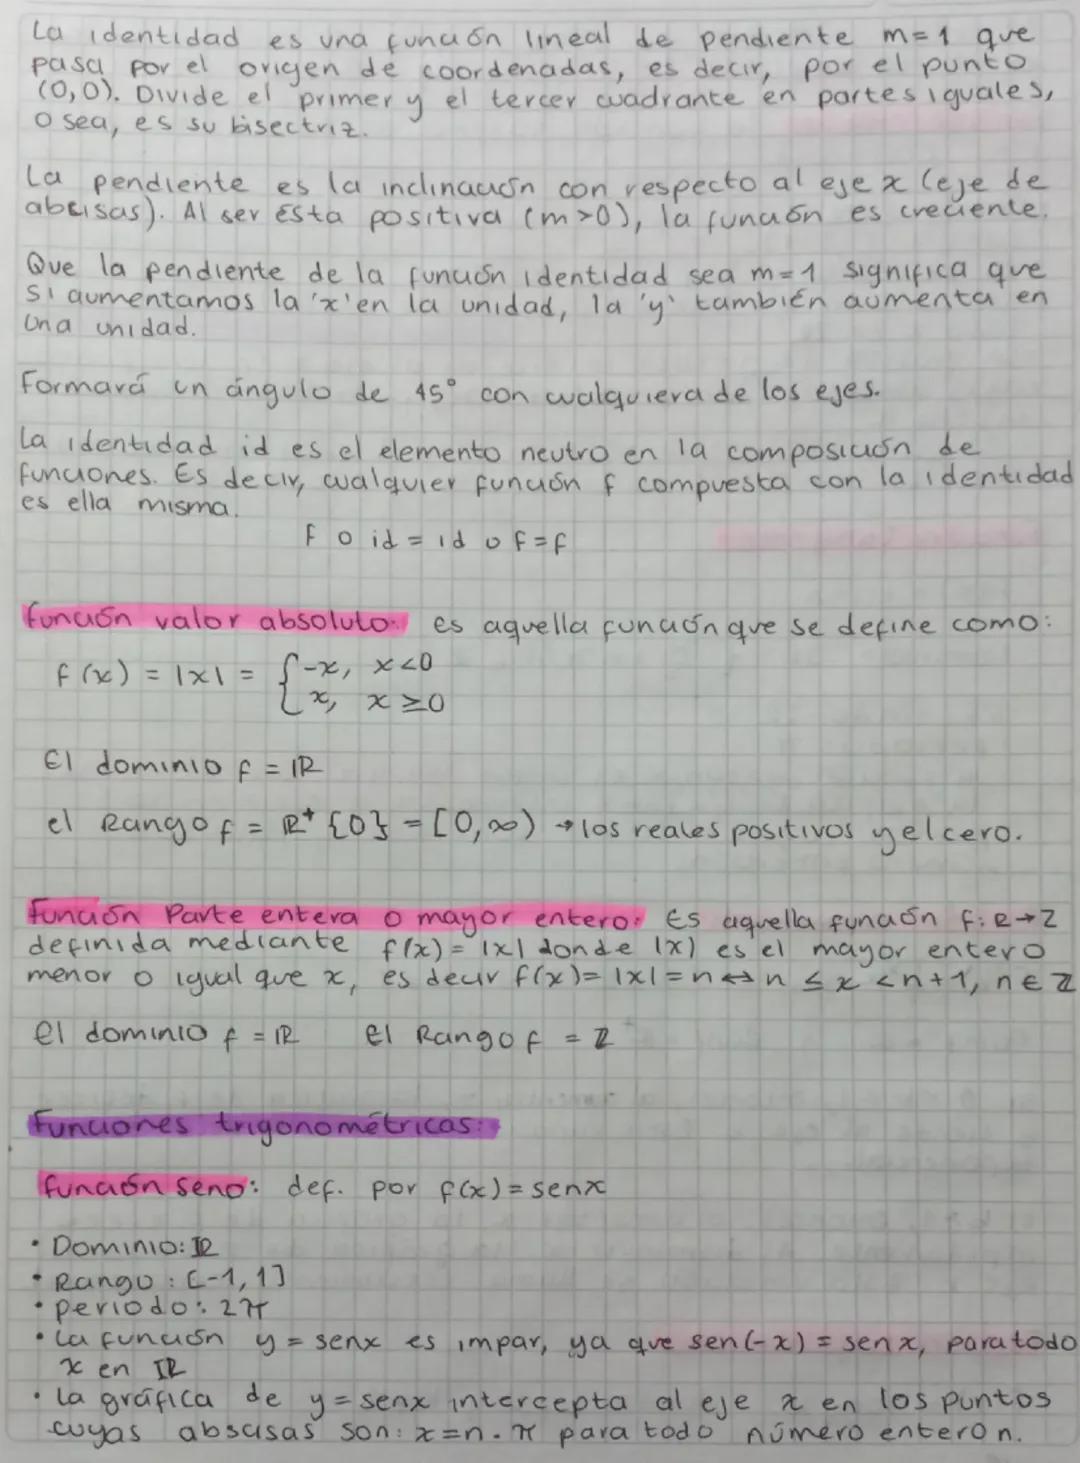 La identidad es una función lineal de pendiente m=1 que
pasa por el origen de coordenadas, es decir, por el punto
(0,0). Divide el primer y el tercer cuadrante en partes iguales,
o sea, es su bisectriz.
La pendiente es la inclinación con respecto al eje x (eje de
abcisas). Al ser ésta positiva (m>0), la función es creciente.
Que la pendiente de la función identidad sea m=1 significa que
si aumentamos la 'x' en la unidad, la 'y' también aumenta en
una unidad.
Formará un ángulo de 45° con cualquiera de los ejes.
La identidad id es el elemento neutro en la composición de
funciones. Es decir, cualquier función f compuesta con la identidad
es ella misma.
f o id = id o f = f
función valor absoluto: es aquella función que se define como:
f(x) = |x| = { -x, x<0
x, x ≥ 0
El dominio f = ℝ
el Rango f = ℝ⁺ {0} = [0,∞) → los reales positivos y el cero.
Función Parte entera o mayor entero: Es aquella función f: R→Z
definida mediante f(x) = |x| donde |x| es el mayor entero
menor o igual que x, es decir f(x) = |x| = n ↔ n ≤ x < n+1, n ∈ ℤ
el dominio f = ℝ el Rango f = ℤ
Funciones trigonométricas:
función seno: def. por f(x) = senx
• Dominio: ℝ
• Rango: [-1,1]
• periodo: 2π
• La función y = senx es impar, ya que sen(-x) = senx, para todo
x en ℝ
• la gráfica de y = senx intercepta al eje x en los puntos
cuyas abscisas son: x=n.π para todo número entero n.